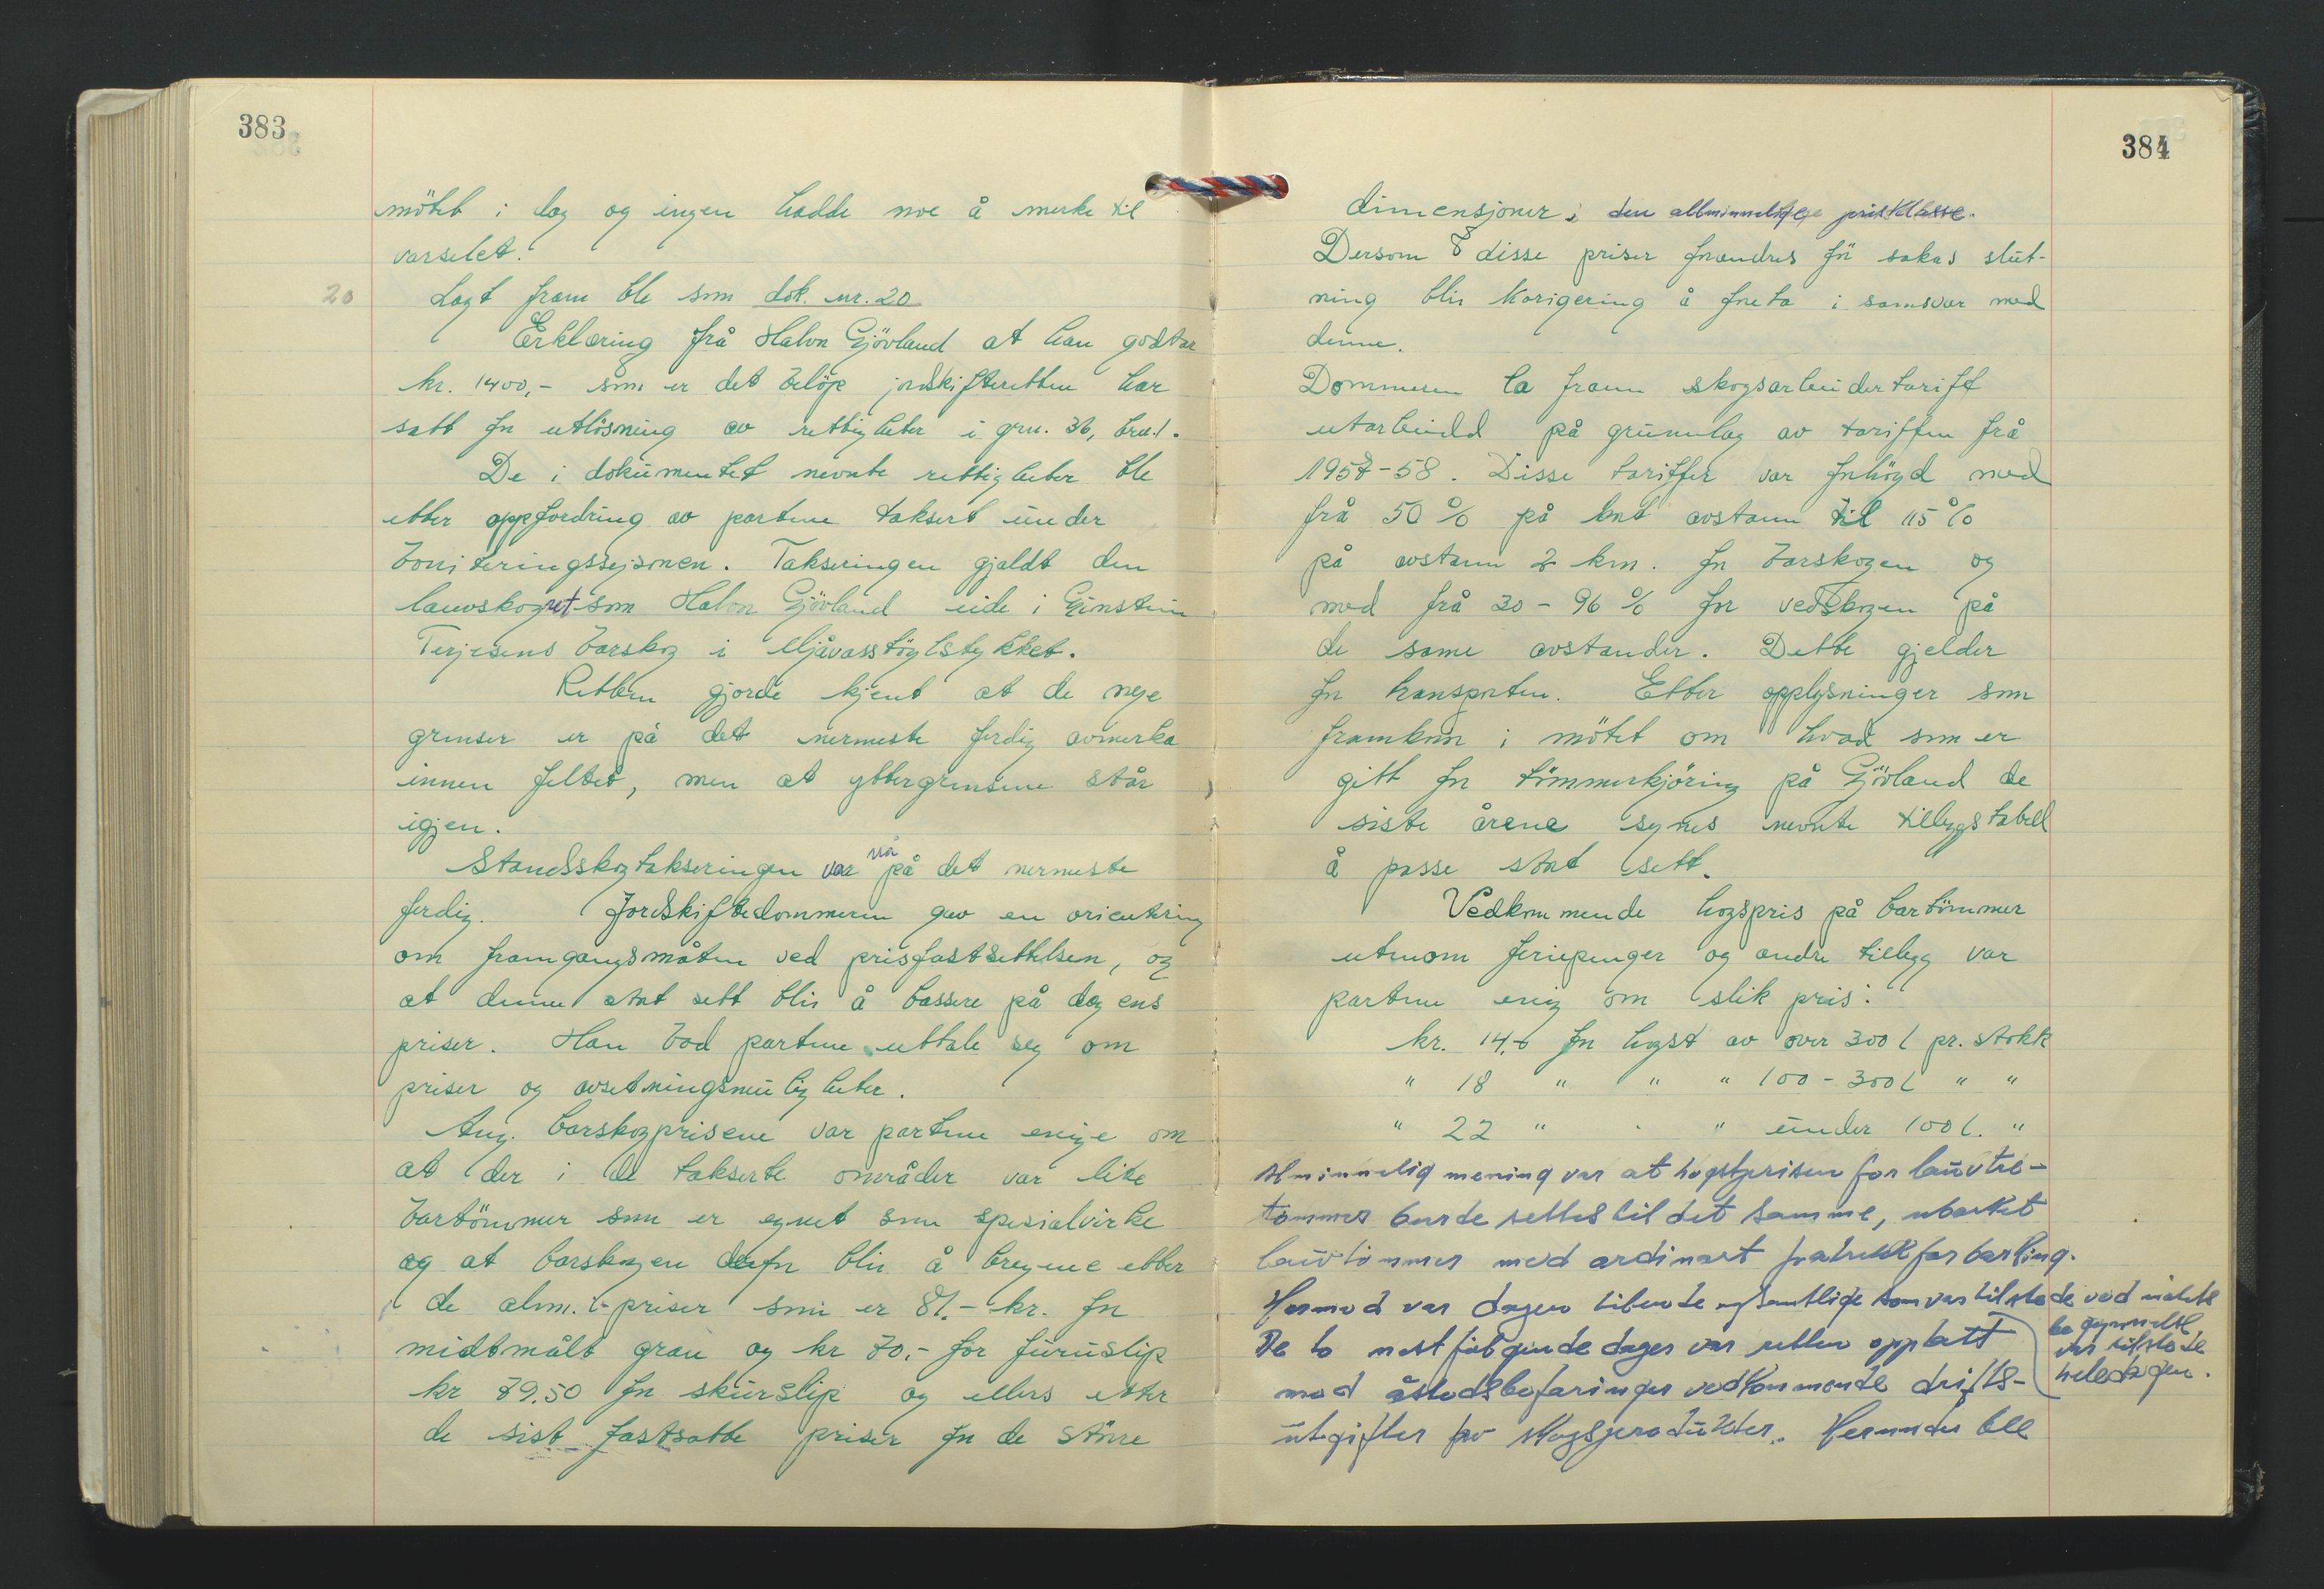 383
møtet i dag og ingen hadde noe å merke til
varselet.
20
Lagt fram ble som dok. nr. 20
Erklæring frå Halvor Gjövland at han godtar
kr. 1400,- som er det beløp jordskifteretten har
satt for utløsning av rettigheter i gnr. 36, bnr. 1.
De i dokumentet nevnte rettigheter ble
etter oppfordring av partene taksert under
boniteringssejsonen. Takseringen gjaldt den
lauvskogret som Halvor Gjövland eide i
Terjesens barskog i
Retten gjorde kjent at de nye
grenser er på det nermeste ferdig avmerka
innen feltet, men at yttergrensene står
igjen.
Standsskogtakseringen var nå på det nermeste
ferdig. Jordskiftedommeren gav en orientering
om framgangsmåten ved prisfastsettelsen, og
at denne stort sett blir å bassere på dagens
priser. Han bad partene uttale seg om
priser og avsetningsmuligheter.
Ang. barskogprisene var partene enige om
at der i de takserte områder var lite
bartömmer som er egnet som spesialvirke
og at barskogen derfor blir å beregne etter
de alm. priser som er 81.- kr. for
midtmålt gran og kr 70,- for furuslip
kr 79.50 for skurslip og ellers etter
de sist fastsatte priser for de større
384
dimensjoner i den allminnelige prisklasse.
Dersom disse priser forandres før sakas slut-
ning blir korigering å foreta i samsvar med
denne.
Dommeren la fram skogsarbeidertariff
utarbeidd på grunnlag av tariffen frå
1957-58. Disse tariffer var forhögd med
frå 50 % på kort avstann til 115 %
på avstann 2 km. for barskogen og
med frå 30 - 96 % for vedskogen på
de same avstander. Dette gjelder
for transporten. Etter opplysninger som
framkom i mötet om hvad som er
gitt for tömmerkjöring på Gjövland de
siste årene synes nevnte tilleggstabell
å passe stort sett.
Vedkommende hogspris på bartömmer
utenom feriepenger og andre tillegg var
partene enig om slik pris:
kr. 14,- for hogst av over 300 l pr. stokk
" 18 " " " 100 - 300 l " "
" 22 " " " under 100 l. "
Alminnelig mening var at hogstprisen for lauvtre-
tømmer burde settes til det samme, ubarket
lauvtømmer med ordinært fratrekk for barking.
Hermed var dagen tilende og samtlige som var tilstede ved møtets
begynnelse
var tilstede
hele dagen.
De to nest følgende dager var retten opptatt
med åstedsbefaringer vedkommende drifts-
utgifter for skogsprodukter. Herunder ble